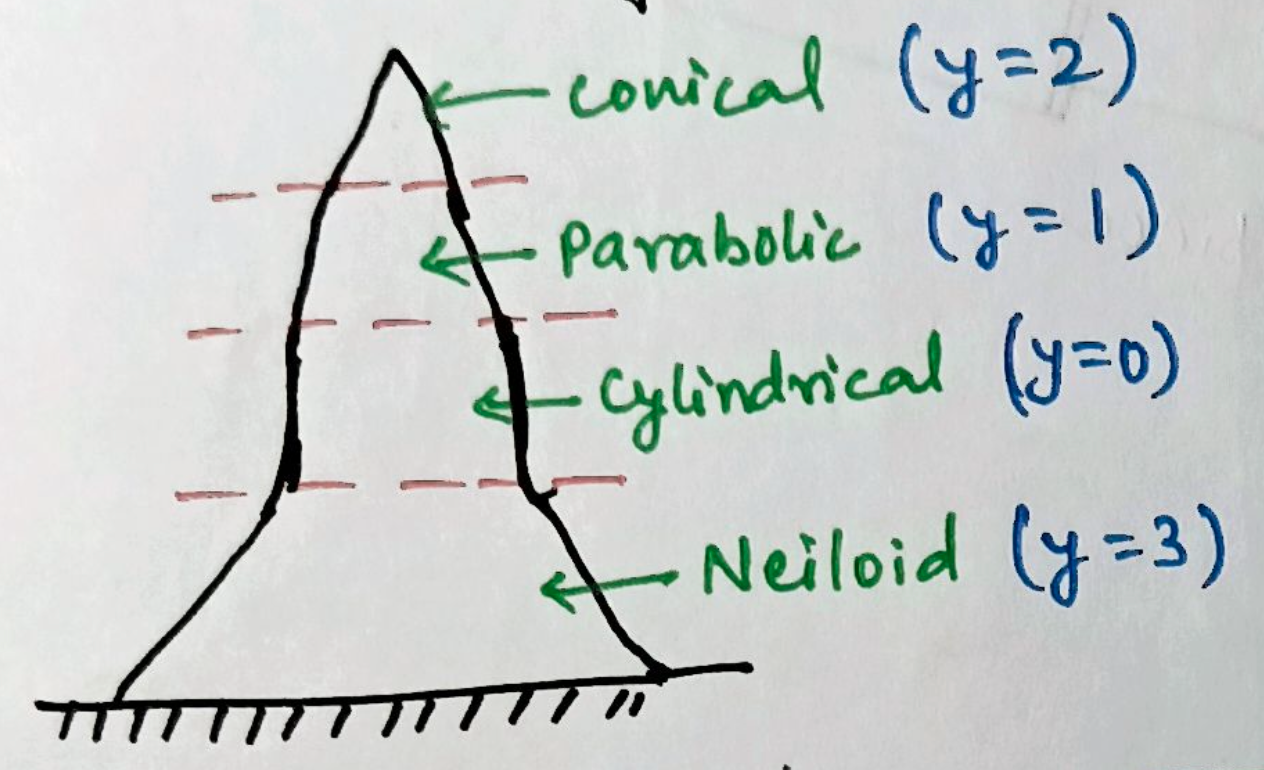 conical (y=2)
Parabolic (y=1)
Cylindrical (y=0)
Neiloid (y=3)